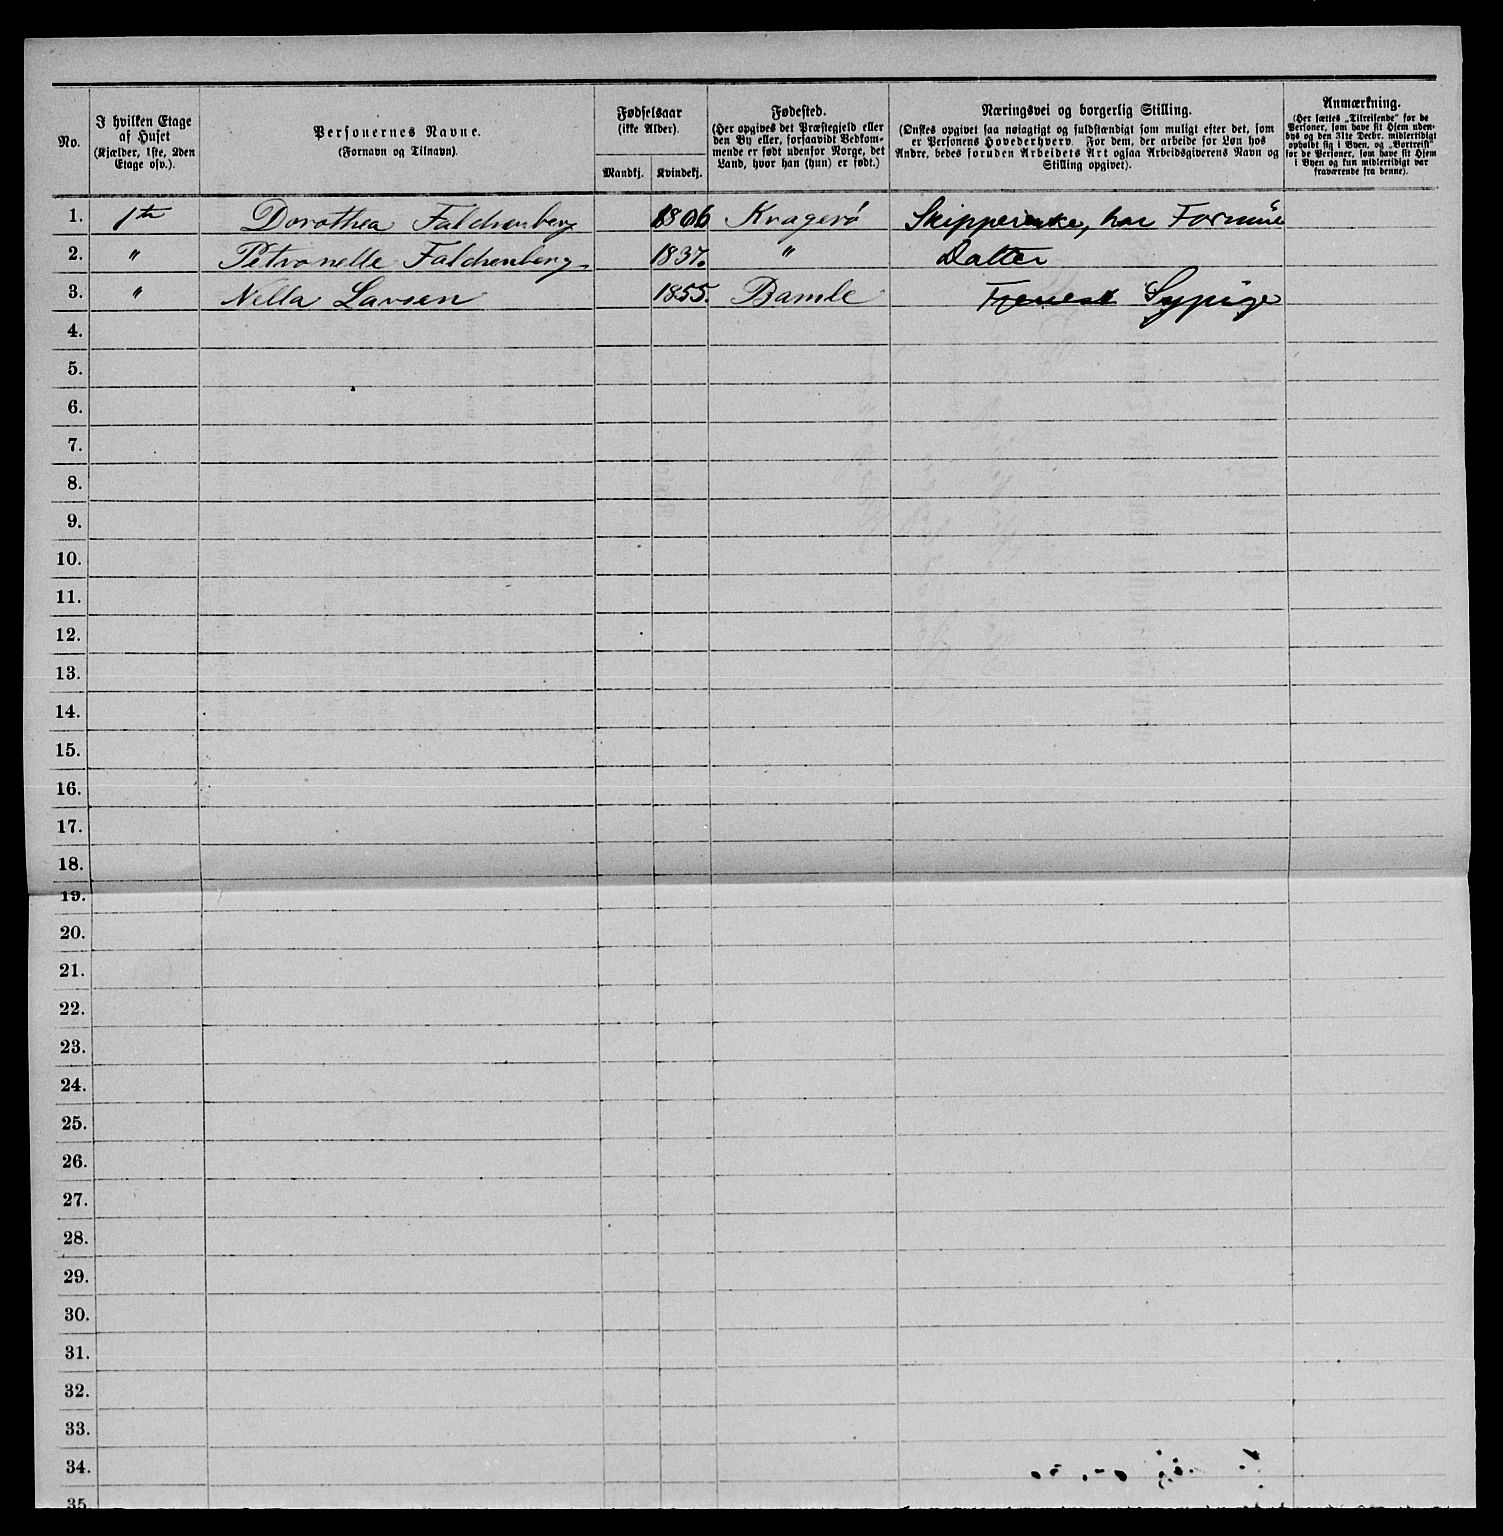 No.
I hvilken Etage
af Huset
(Kjælder, 1ste, 2den
Etage osv.).
Personernes Navne.
(Fornavn og Tilnavn).
Fødselsaar
(ikke Alder).
Mandkj. Kvindekj.
Fødested.
(Her opgives det Præstegjeld eller
den By eller, forsaavidt Vedkom-
mende er født udenfor Norge, det
Land, hvor han (hun) er født.)
Næringsvei og borgerlig Stilling.
(Ønskes opgivet saa nøiagtigt og fuldstændigt som muligt efter det, som
er Personens Hovederhverv. For dem, der arbeide for Løn hos
Andre, bedes foruden Arbeidets Art ogsaa Arbeidsgiverens Navn og
Stilling opgivet).
Anmærkning.
(Her sættes „Tilreisende“ for de
Personer, som have sit Hjem uden-
bys og den 31te Decbr. midlertidigt
opholdt sig i Byen, og „Bortreist“
for de Personer, som have sit Hjem
i Byen og kun midlertidigt var
fraværende fra denne).
1. 1te Dorothea Falchenberg 1806 Kragerø Skipperenke, har Formue
2. " Petronelle Falchenberg 1837. " Datter
3. " Nella Larsen 1855. Bamle Tjenest Sypige
4.
5.
6.
7.
8.
9.
10.
11.
12.
13.
14.
15.
16.
17.
18.
19.
20.
21.
22.
23.
24.
25.
26.
27.
28.
29.
30.
31.
32.
33.
34.
35.